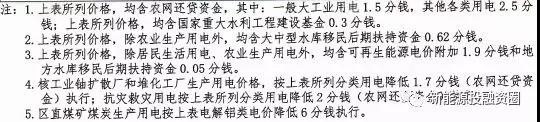 注：1. 上表所列价格，均含农网还贷资金，其中：一般大工业用电1.5分钱，其他各类用电2.5分
钱；上表所列价格，均含国家重大水利工程建设基金0.3分钱。
2. 上表所列价格，除农业生产用电外，均含大中型水库移民后期扶持资金0.62分钱。
3. 上表所列价格，除居民生活用电、农业生产用电外，均含可再生能源电价附加1.9分钱和地
方水库移民后期扶持资金0.05分钱。
4. 核工业铀扩散厂和堆化工厂生产用电价格，按上表所列分类用电降低1.7分钱（农网还贷资
金）执行；抗灾救灾用电按上表所列分类用电降低2分钱（农网还
5. 区直煤矿煤炭生产用电按上表电解铝类电价降低6分钱执行。
新能源投融资圈